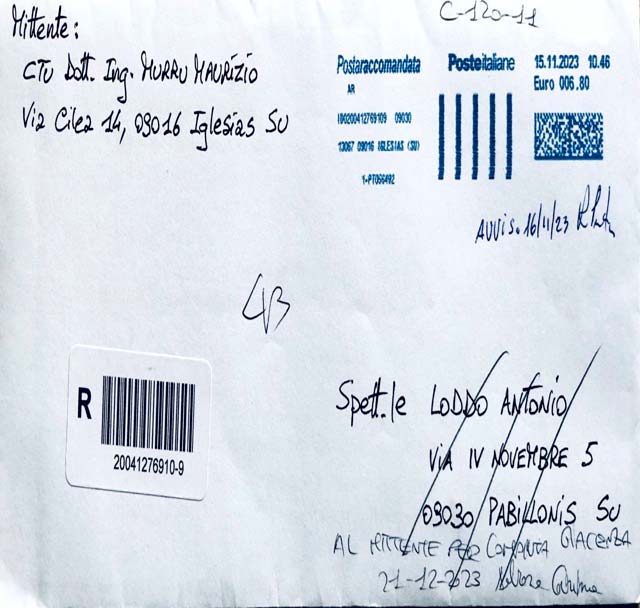 Mittente:
CTU Dott. Ing. MURRU MAURIZIO
Via Cilea 14, 09016 Iglesias SU
C-120-11
Postaraccomandata
AR
Posteitaliane
15.11.2023 10.46
Euro 006.80
200412769109 09030
13067 09016 IGLESIAS (SU)
AVVIS. 16/11/23
R
20041276910-9
Spett.le LODDO ANTONIO
VIA IV NOVEMBRE 5
09030 PABILLONIS SU
AL MITTENTE PER COMPIUTA GIACENZA
21-12-2023